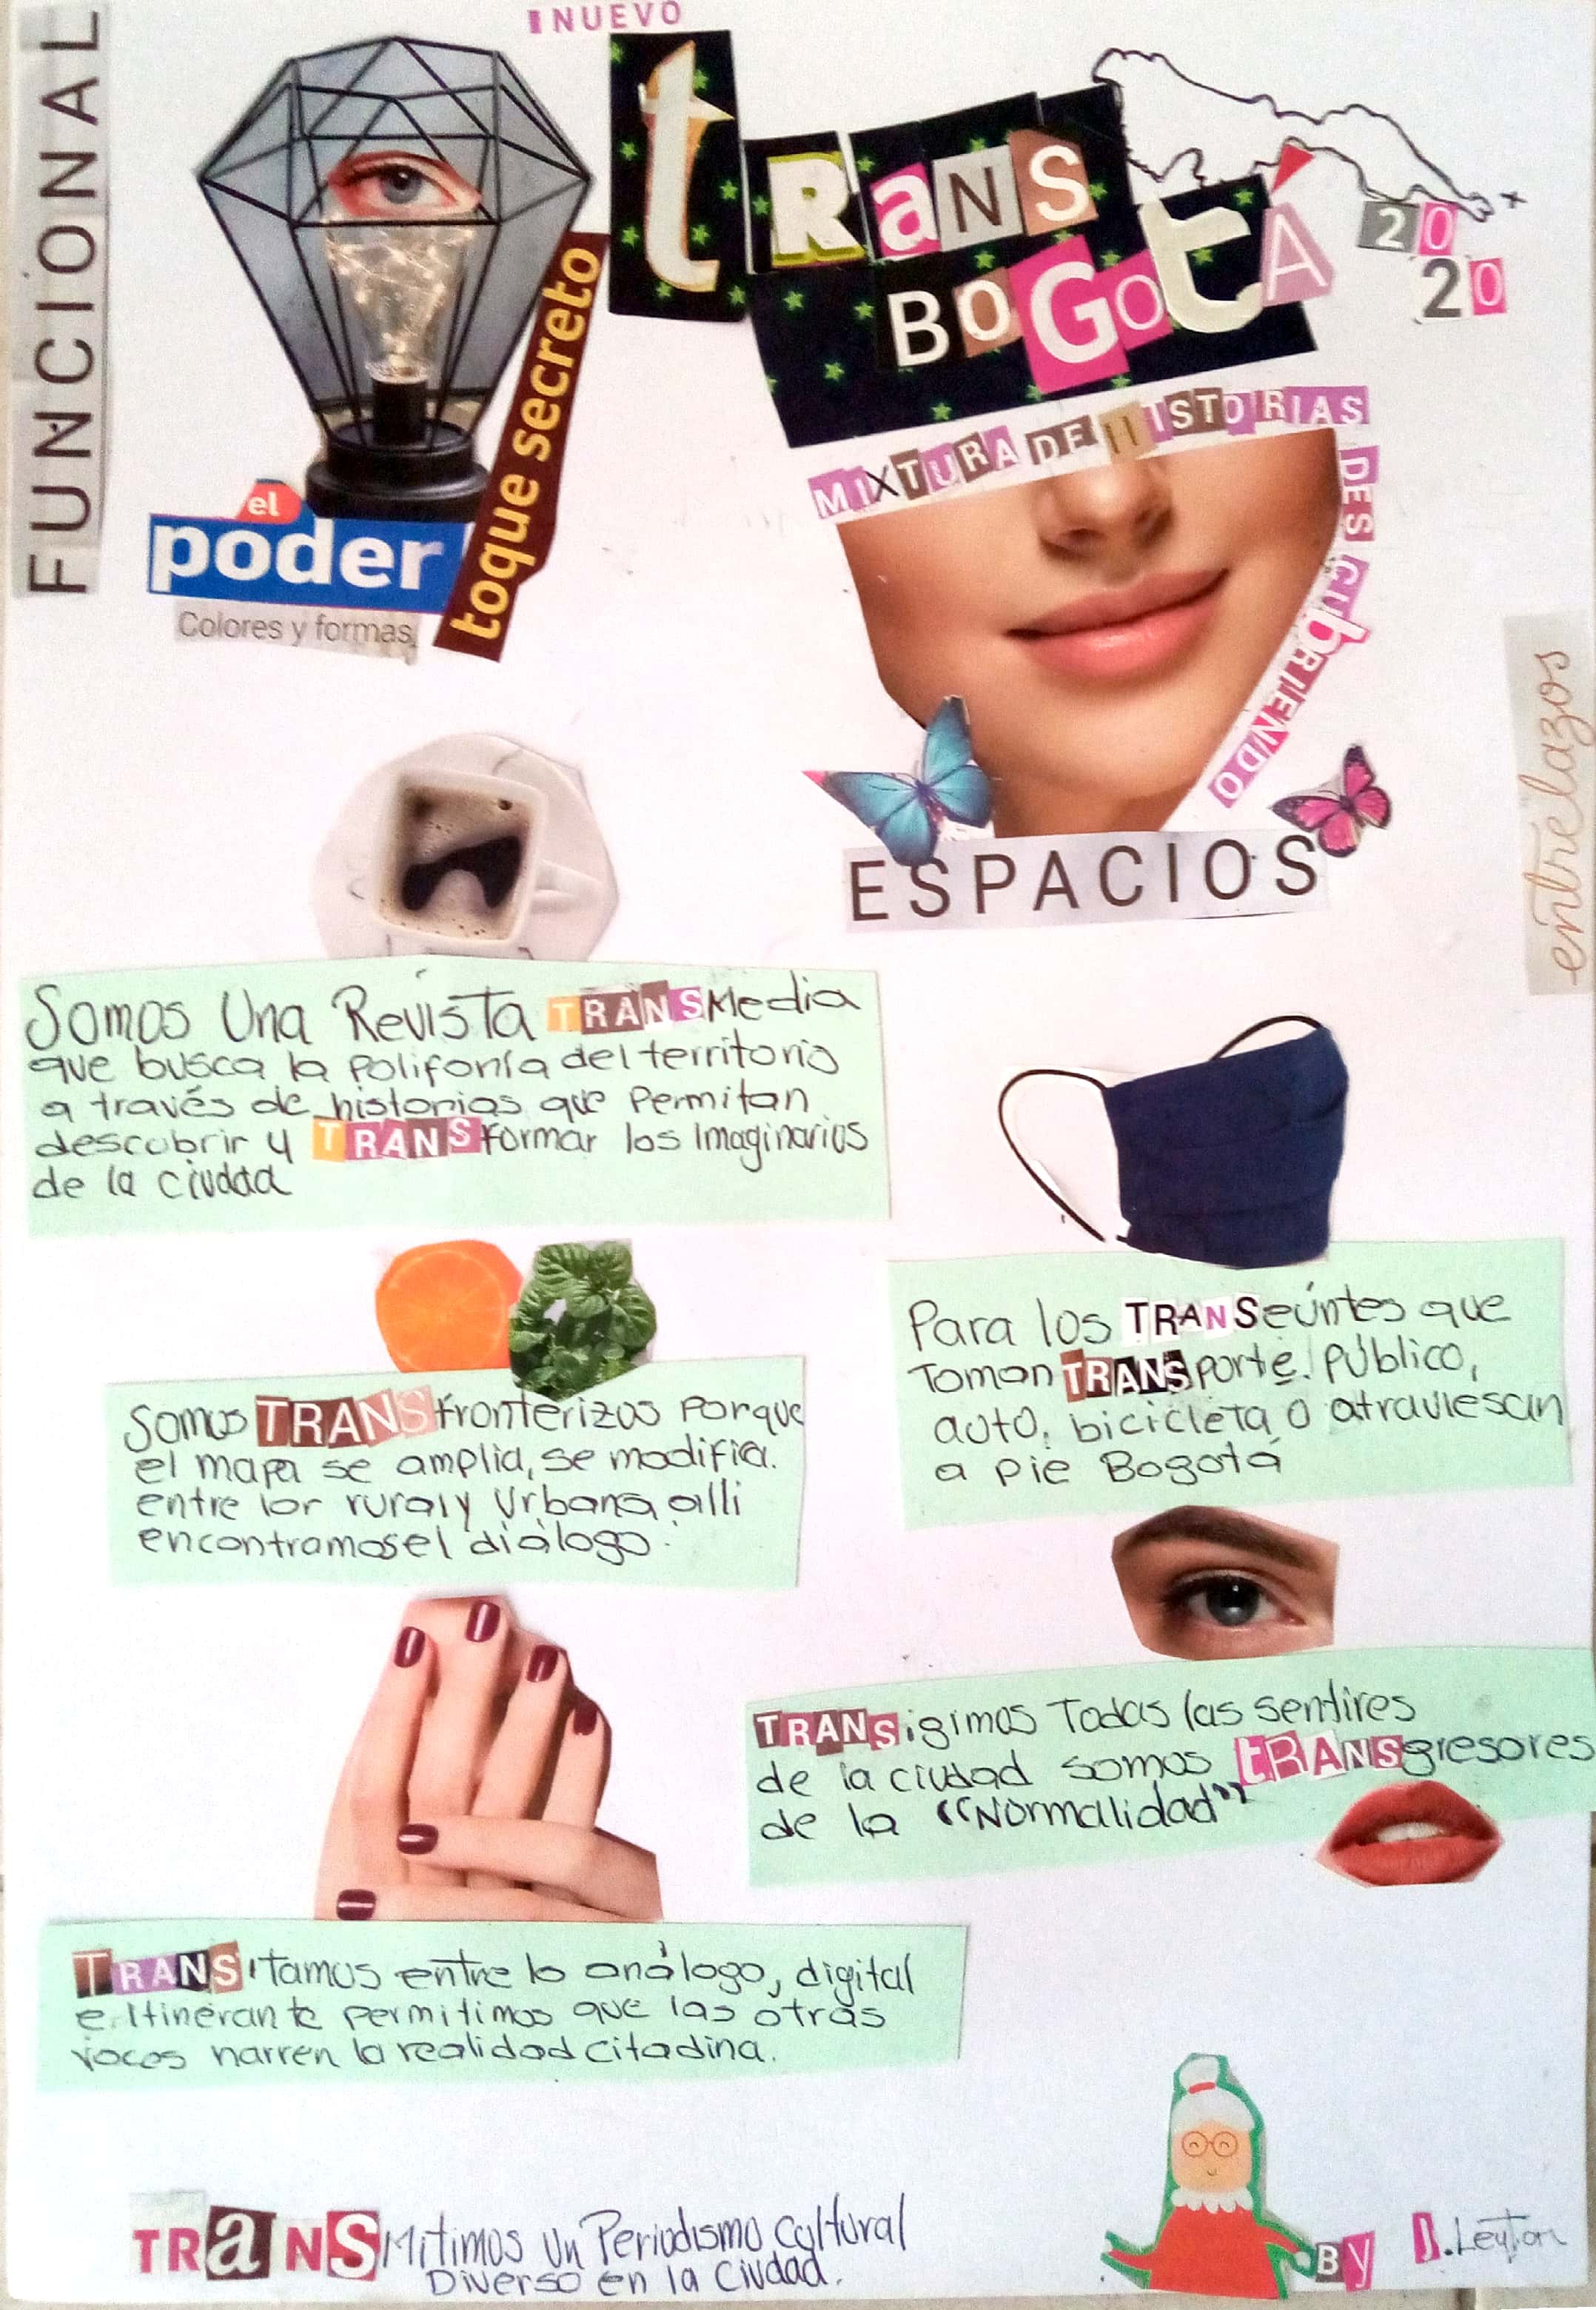 FUNCIONAL
NUEVO
tRaNS
BOGOtÁ
20
20
el
poder
Colores y formas
toque secreto
MIXTURA DE HISTORIAS
DESCUbRIENDO
ESPACIOS
entrelazos
Somos Una Revista TRANSMedia
que busca la polifonía del territorio
a través de historias que Permitan
descubrir y TRANSformar los Imaginarios
de la ciudad
Para los TRANSeúntes que
Toman TRANSporte público,
auto, bicicleta o atraviesan
a pie Bogotá
Somos TRANSfronterizos Porque
el mapa se amplia, se modifica.
entre lor rural y Urbano, alli
encontramos el diálogo.
TRANSigimos Todas las sentires
de la ciudad somos tRANSgresores
de la "Normalidad"
TRANSitamos entre lo análogo, digital
e Itinerante permitimos que las otras
voces narren la realidad citadina.
TRaNSMitimos un Periodismo Cultural
Diverso en la Ciudad.
By J. Leyton